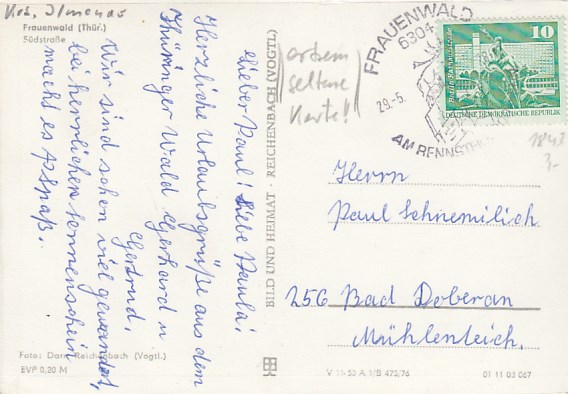 Krs. Ilmenau
Frauenwald (Thür.)
Südstraße
Lieber Paul! Liebe Paula!
Herzliche Urlaubsgrüße aus dem
Thüringer Wald Gerhard u
Gertrud.
Wir sind schon viel gewandert,
bei herrlichen Sonnenschein
macht es Spaß.
Foto: Darr, Reichenbach (Vogtl.)
EVP 0,20 M
BILD UND HEIMAT · REICHENBACH (VOGTL)
seltene
Karte!
FRAUENWALD
6304
29.-5.
AM RENNST
10
DEUTSCHE DEMOKRATISCHE REPUBLIK
3,-
Herrn
Paul Schnemilich
256 Bad Doberan
Mühlenteich.
V 11 50 A 1/B 475/76
01 11 03 067